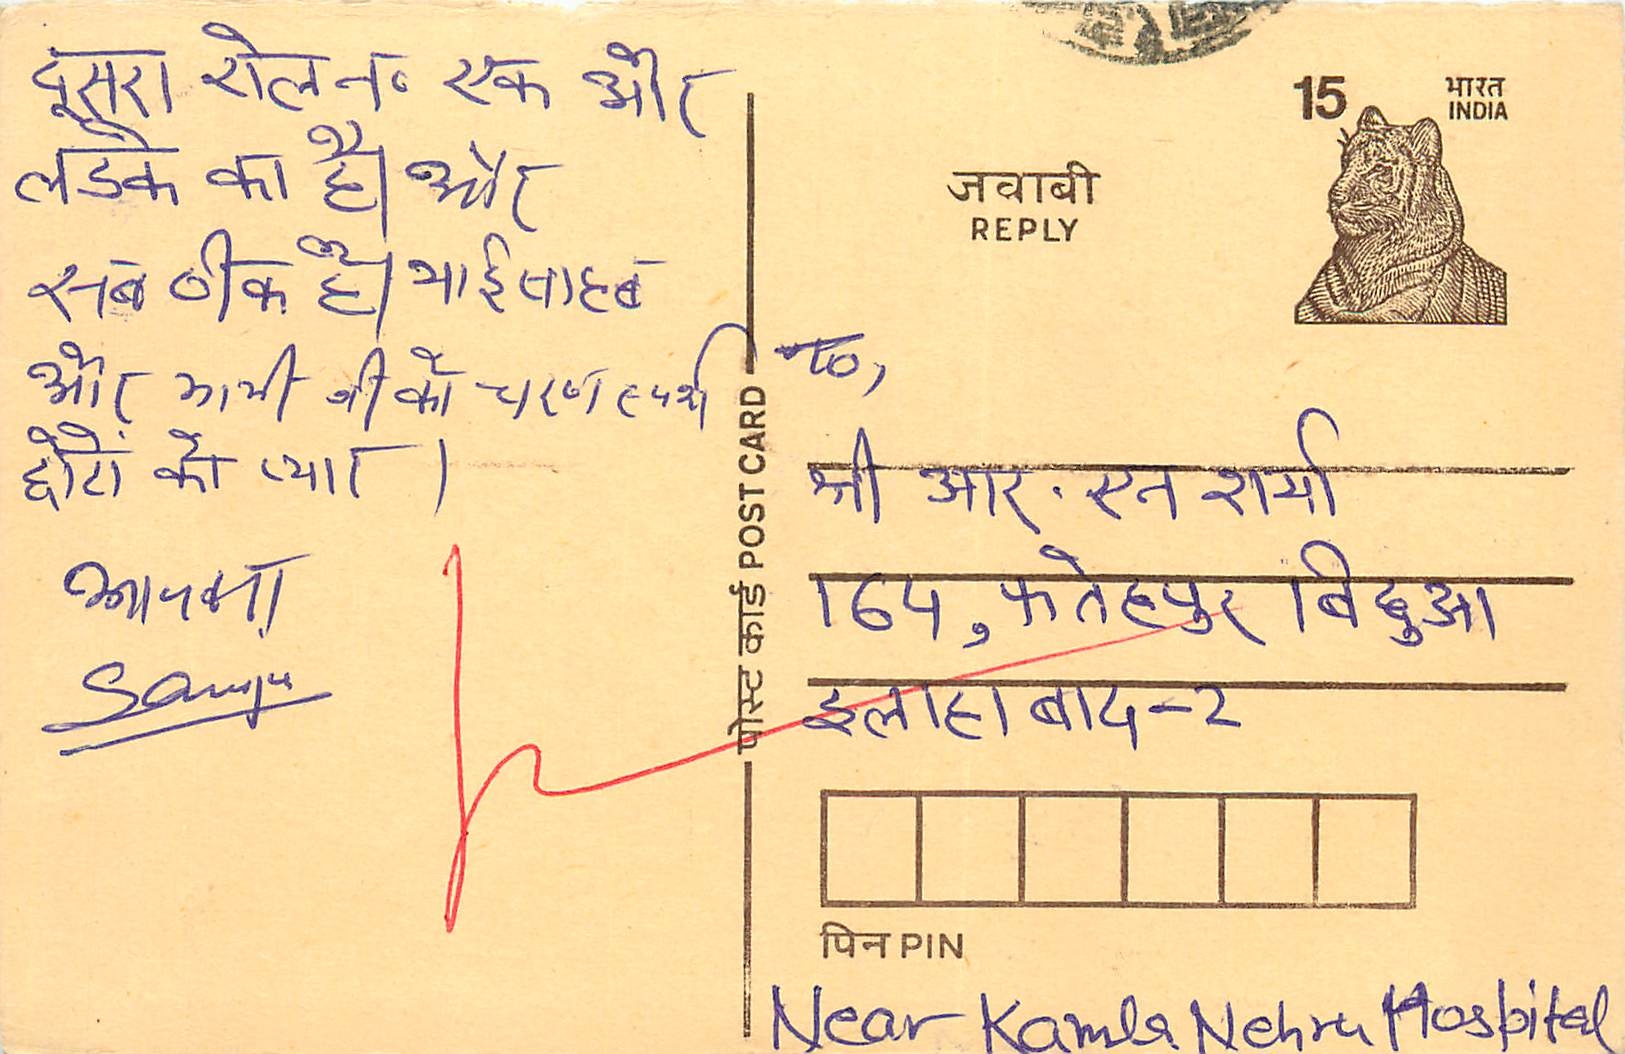 दूसरा रोल न० एक और
लडके का है। और
सब ठीक है। भाई साहब
और भाभी जी को चरण स्पर्श
छोटों को प्यार।
आपका
Sanju
15
भारत
INDIA
जवाबी
REPLY
पोस्ट कार्ड POST CARD
To,
श्री आर. एन शर्मा
164, फतेहपुर बिछुआ
इलाहाबाद-2
पिन PIN
Near Kamla Nehru Hospital